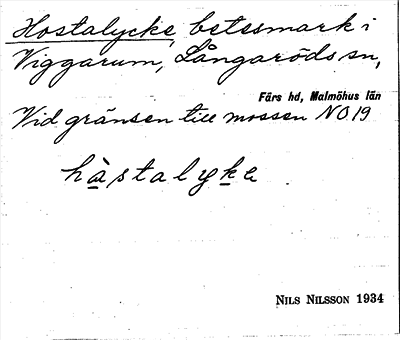 Hostalycke, betesmark i
Viggarum, Långaröds sn,
Färs hd, Malmöhus län
Vid gränsen till mossen NO 19
hàstalyke
NILS NILSSON 1934